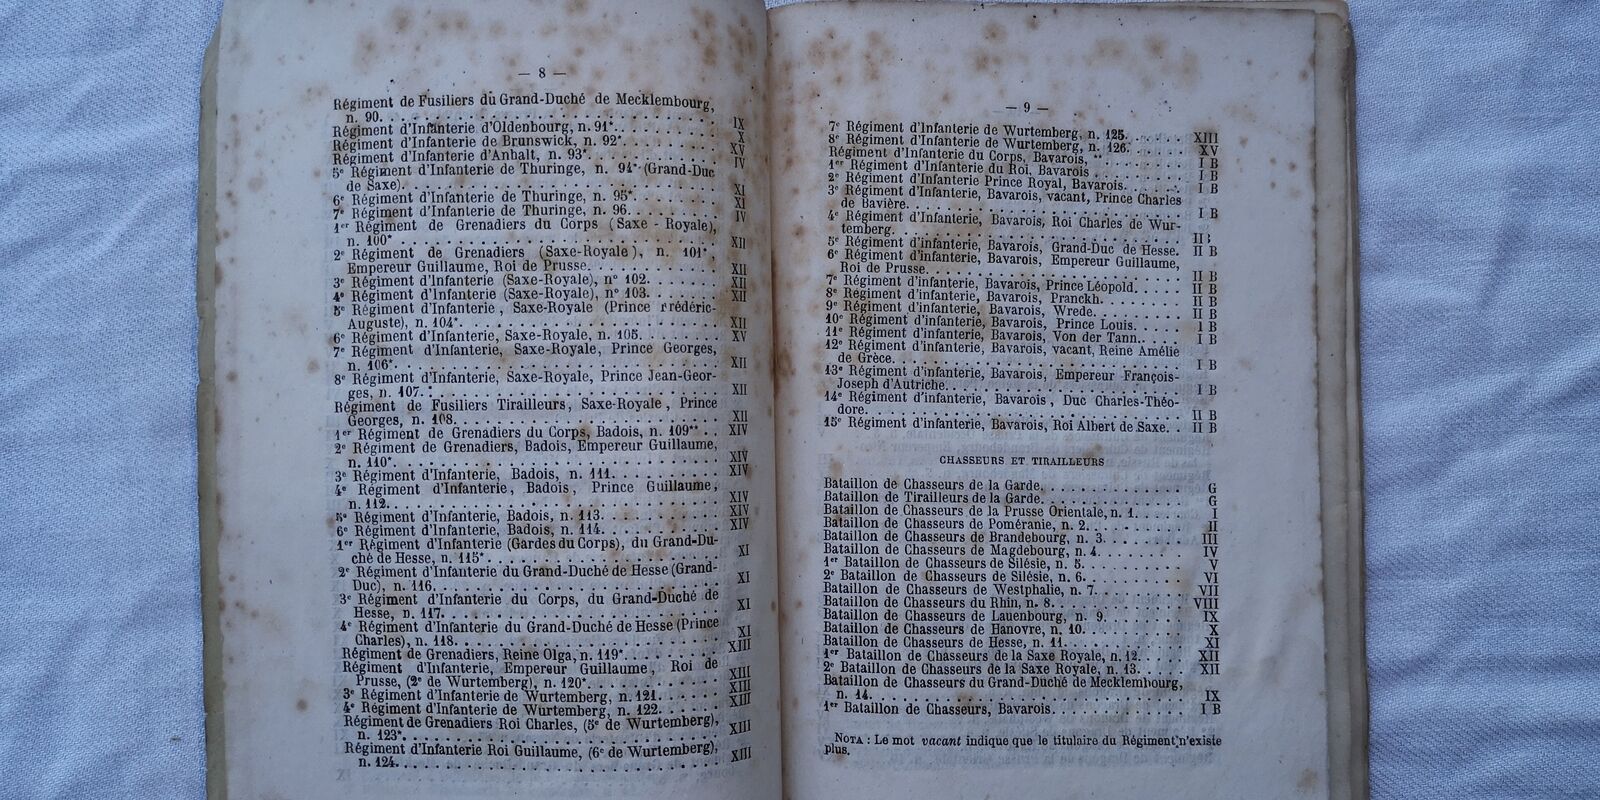 — 8 —
Régiment de Fusiliers du Grand-Duché de Mecklembourg,
n. 90. IX
Régiment d'Infanterie d'Oldenbourg, n. 91*. X
Régiment d'Infanterie de Brunswick, n. 92* XV
Régiment d'Infanterie d'Anhalt, n. 93* IV
5e Régiment d'Infanterie de Thuringe, n. 94* (Grand-Duc
de Saxe). XI
6e Régiment d'Infanterie de Thuringe, n. 95*. XI
7e Régiment d'Infanterie de Thuringe, n. 96. IV
1er Régiment de Grenadiers du Corps (Saxe-Royale),
n. 100* XII
2e Régiment de Grenadiers (Saxe-Royale), n. 101*,
Empereur Guillaume, Roi de Prusse. XII
3e Régiment d'Infanterie (Saxe-Royale), n° 102. XII
4e Régiment d'Infanterie (Saxe-Royale), n° 103. XII
5e Régiment d'Infanterie, Saxe-Royale (Prince Frédéric-
Auguste), n. 104*. XII
6e Régiment d'Infanterie, Saxe-Royale, n. 105. XV
7e Régiment d'Infanterie, Saxe-Royale, Prince Georges,
n. 106* XII
8e Régiment d'Infanterie, Saxe-Royale, Prince Jean-Geor-
ges, n. 107. XII
Régiment de Fusiliers Tirailleurs, Saxe-Royale, Prince
Georges, n. 108. XII
1er Régiment de Grenadiers du Corps, Badois, n. 109** XIV
2e Régiment de Grenadiers, Badois, Empereur Guillaume,
n. 110*. XIV
3e Régiment d'Infanterie, Badois, n. 111. XIV
4e Régiment d'Infanterie, Badois, Prince Guillaume,
n. 112. XIV
5e Régiment d'Infanterie, Badois, n. 113. XIV
6e Régiment d'Infanterie, Badois, n. 114. XIV
1er Régiment d'Infanterie (Gardes du Corps), du Grand-Du-
ché de Hesse, n. 115* XI
2e Régiment d'Infanterie du Grand-Duché de Hesse (Grand-
Duc), n. 116. XI
3e Régiment d'Infanterie du Corps, du Grand-Duché de
Hesse, n. 117. XI
4e Régiment d'Infanterie du Grand-Duché de Hesse (Prince
Charles), n. 118. XI
Régiment de Grenadiers, Reine Olga, n. 119*. XIII
Régiment d'Infanterie, Empereur Guillaume, Roi de
Prusse, (2e de Wurtemberg), n. 120* XIII
3e Régiment d'Infanterie de Wurtemberg, n. 121. XIII
4e Régiment d'Infanterie de Wurtemberg, n. 122. XIII
Régiment de Grenadiers Roi Charles, (5e de Wurtemberg),
n. 123*. XIII
Régiment d'Infanterie Roi Guillaume, (6e de Wurtemberg),
n. 124. XIII
— 9 —
7e Régiment d'Infanterie de Wurtemberg, n. 125. XIII
8e Régiment d'Infanterie de Wurtemberg, n. 126. XV
Régiment d'Infanterie du Corps, Bavarois, ** I B
1er Régiment d'Infanterie du Roi, Bavarois I B
2e Régiment d'Infanterie Prince Royal, Bavarois. I B
3e Régiment d'Infanterie, Bavarois, vacant, Prince Charles
de Bavière. I B
4e Régiment d'Infanterie, Bavarois, Roi Charles de Wur-
temberg. II B
5e Régiment d'infanterie, Bavarois, Grand-Duc de Hesse. II B
6e Régiment d'infanterie, Bavarois, Empereur Guillaume,
Roi de Prusse. II B
7e Régiment d'infanterie, Bavarois, Prince Léopold. II B
8e Régiment d'infanterie, Bavarois, Pranckh. II B
9e Régiment d'infanterie, Bavarois, Wrede. II B
10e Régiment d'infanterie, Bavarois, Prince Louis. I B
11e Régiment d'infanterie, Bavarois, Von der Tann. I B
12e Régiment d'infanterie, Bavarois, vacant, Reine Amélie
de Grèce. I B
13e Régiment d'infanterie, Bavarois, Empereur François-
Joseph d'Autriche. I B
14e Régiment d'infanterie, Bavarois, Duc Charles-Théo-
dore. II B
15e Régiment d'infanterie, Bavarois, Roi Albert de Saxe. II B
CHASSEURS ET TIRAILLEURS
Bataillon de Chasseurs de la Garde. G
Bataillon de Tirailleurs de la Garde. G
Bataillon de Chasseurs de la Prusse Orientale, n. 1. I
Bataillon de Chasseurs de Poméranie, n. 2. II
Bataillon de Chasseurs de Brandebourg, n. 3. III
Bataillon de Chasseurs de Magdebourg, n. 4. IV
1er Bataillon de Chasseurs de Silésie, n. 5. V
2e Bataillon de Chasseurs de Silésie, n. 6. VI
Bataillon de Chasseurs de Westphalie, n. 7. VII
Bataillon de Chasseurs du Rhin, n. 8. VIII
Bataillon de Chasseurs de Lauenbourg, n. 9. IX
Bataillon de Chasseurs de Hanovre, n. 10. X
Bataillon de Chasseurs de Hesse, n. 11. XI
1er Bataillon de Chasseurs de la Saxe Royale, n. 12. XII
2e Bataillon de Chasseurs de la Saxe Royale, n. 13. XII
Bataillon de Chasseurs du Grand-Duché de Mecklembourg,
n. 14. IX
1er Bataillon de Chasseurs, Bavarois. I B
NOTA : Le mot vacant indique que le titulaire du Régiment n'existe
plus.